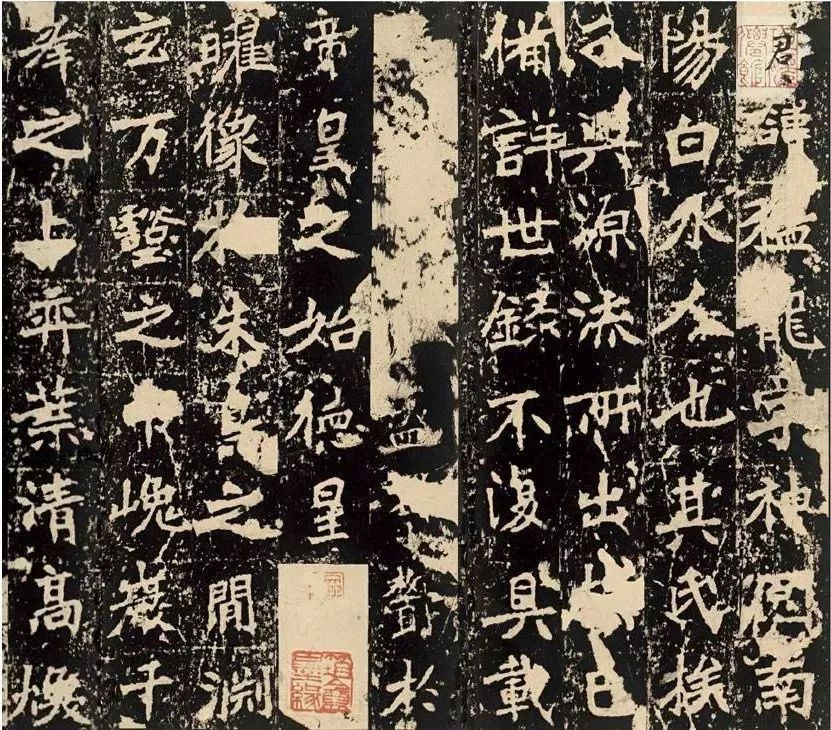 君諱猛龍字神囧南
陽白水人也其氏族
分興源流所出已
備詳世錄不復具載
欝於
帝皇之始德星
曜像於朱鳥之閒淵
玄万壑之中嵬巖千
峯之上弈葉清高煥